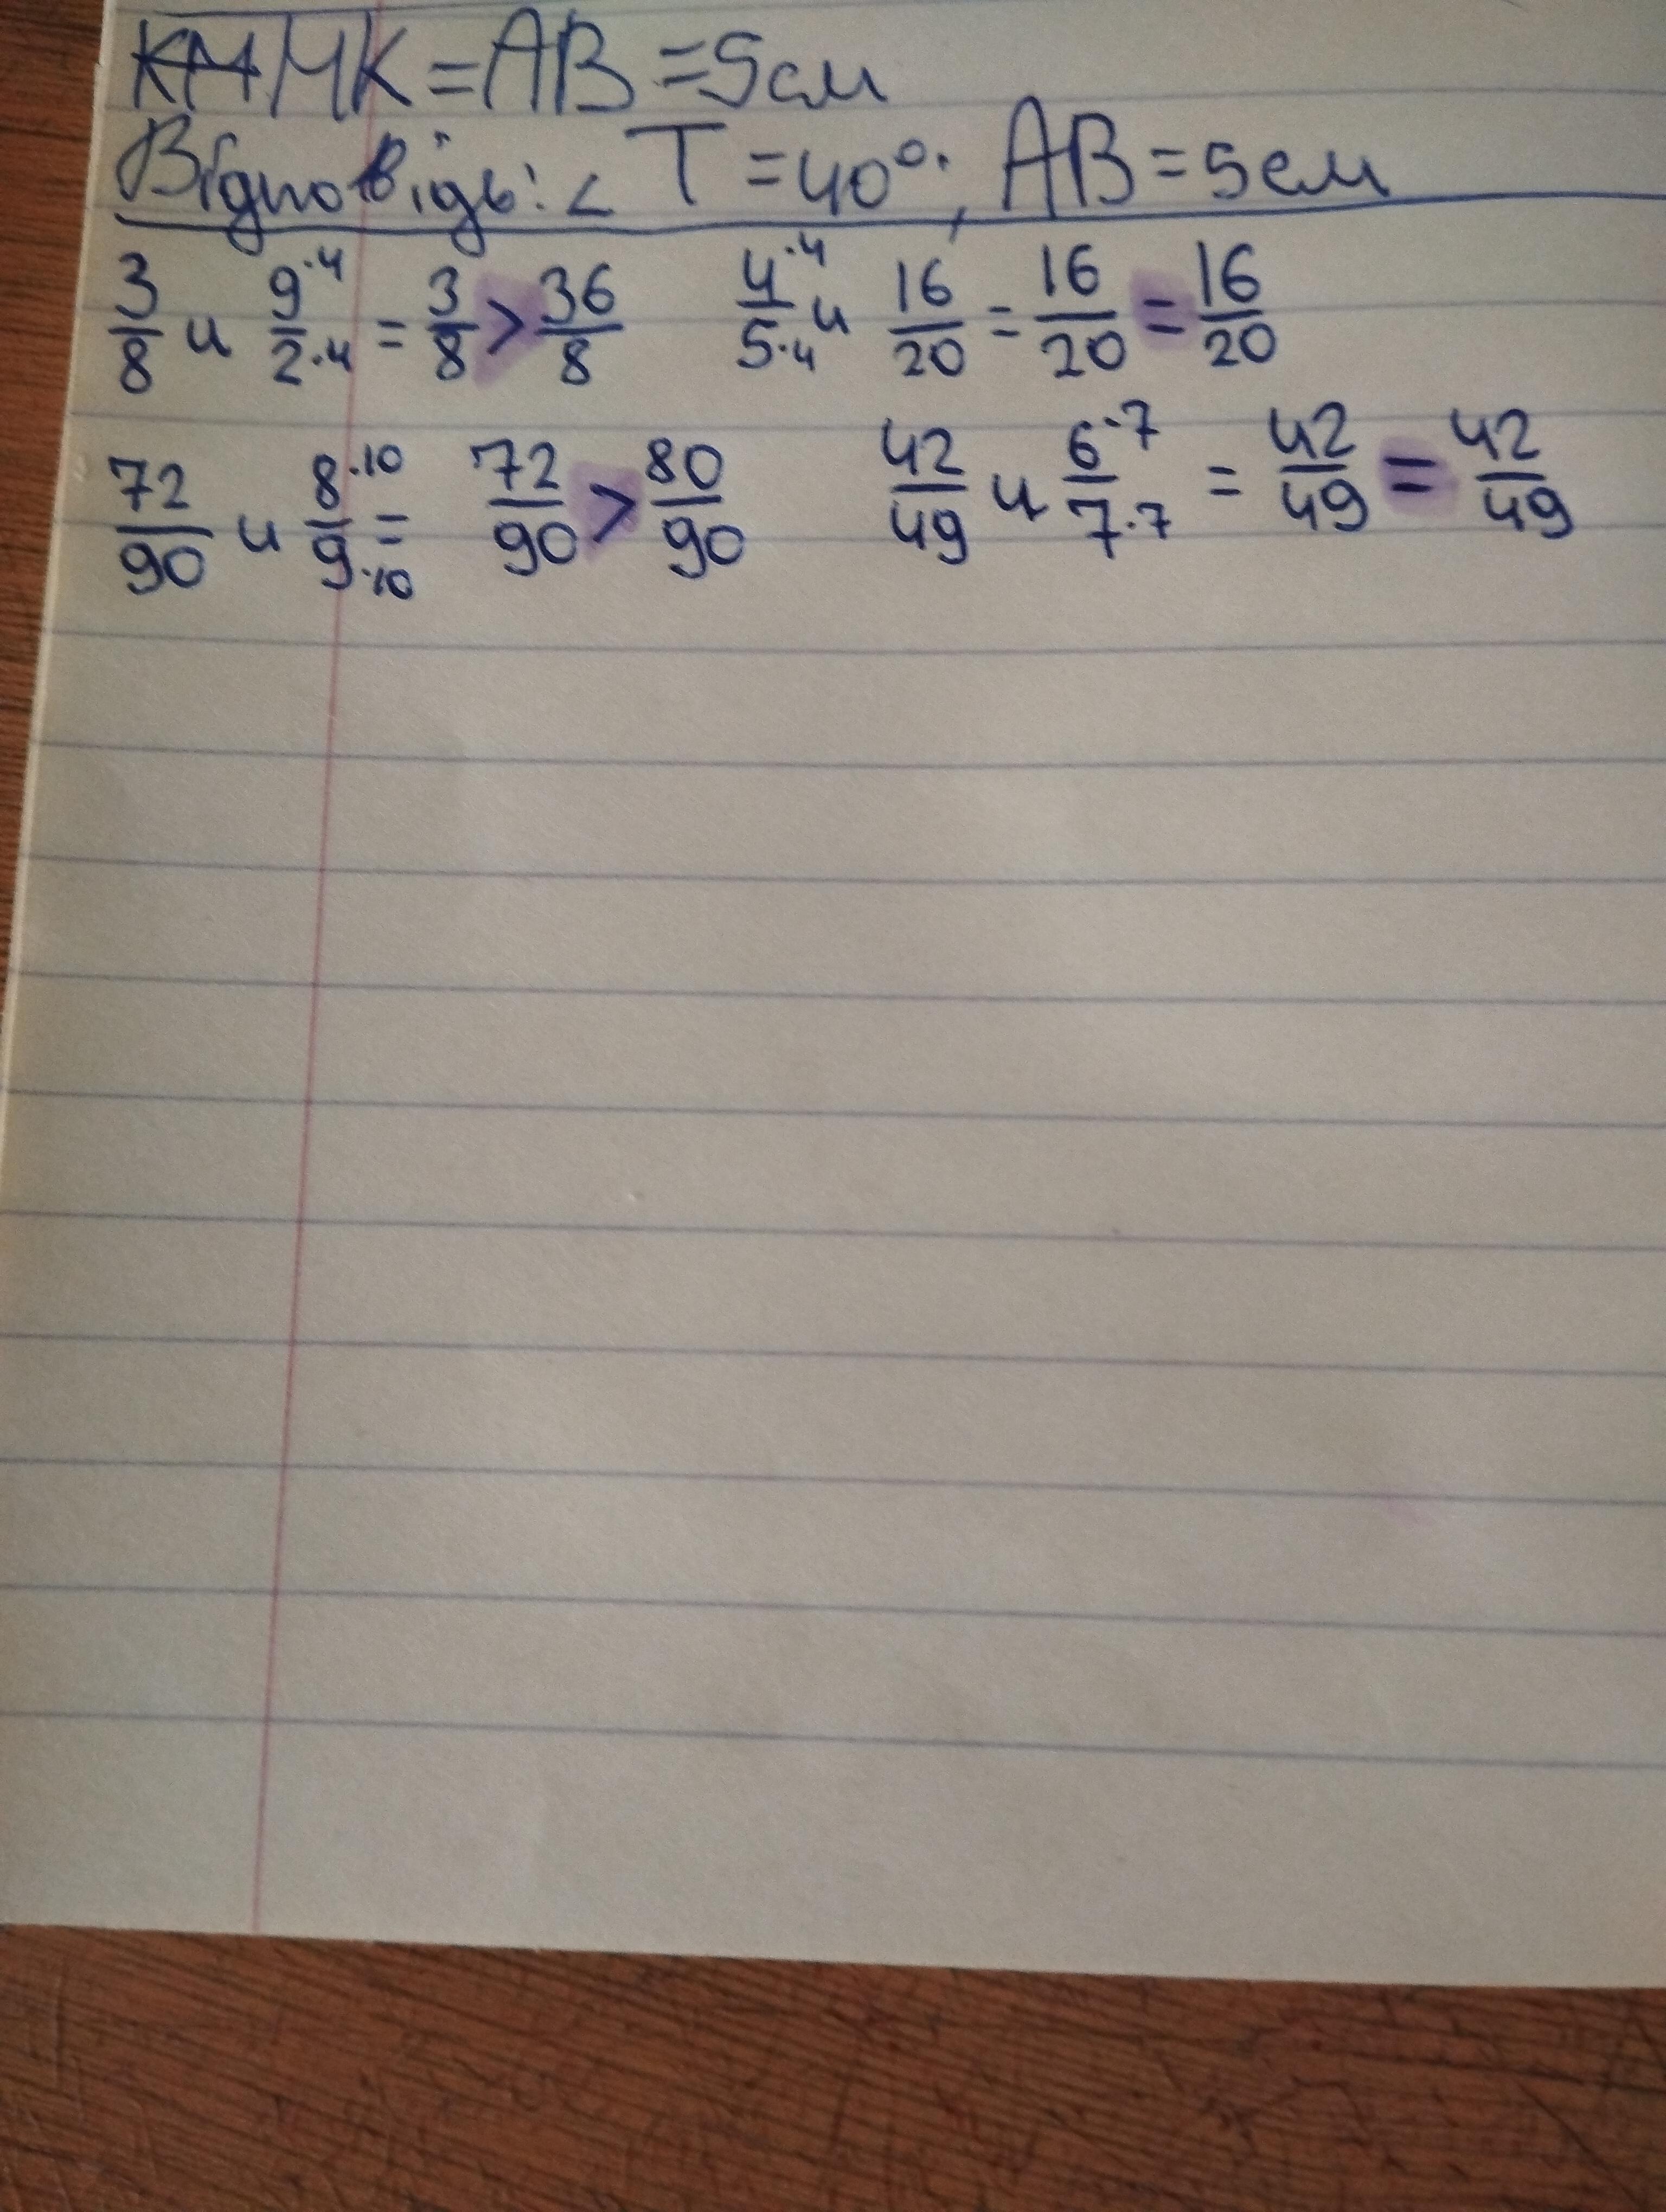 МК = АВ = 5см
Відповідь: < Т = 40°, АВ = 5см
3/8 и 9·4/2·4 = 3/8 > 36/8 4·4/5·4 и 16/20 = 16/20 = 16/20
72/90 и 8·10/9·10 = 72/90 > 80/90 42/49 и 6·7/7·7 = 42/49 = 42/49